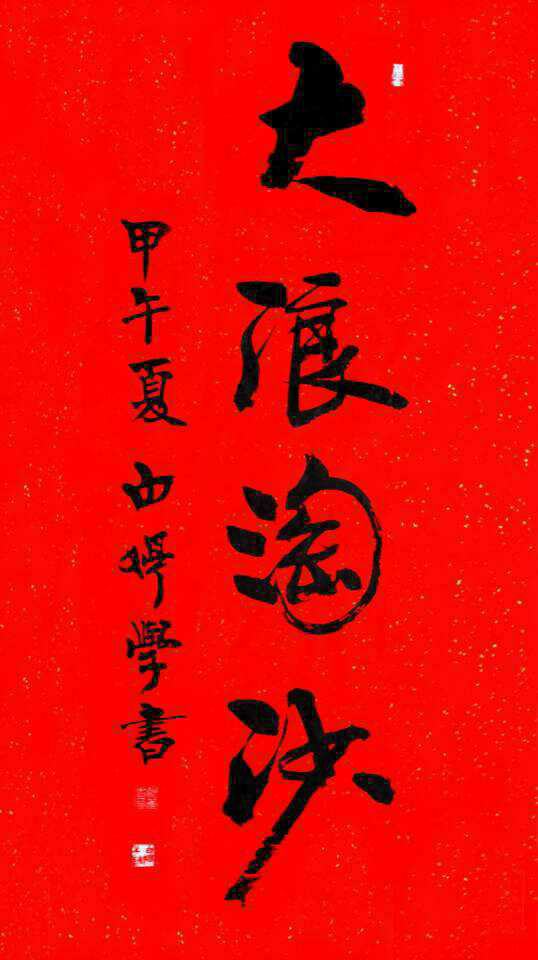 大浪淘沙
甲午夏 學書